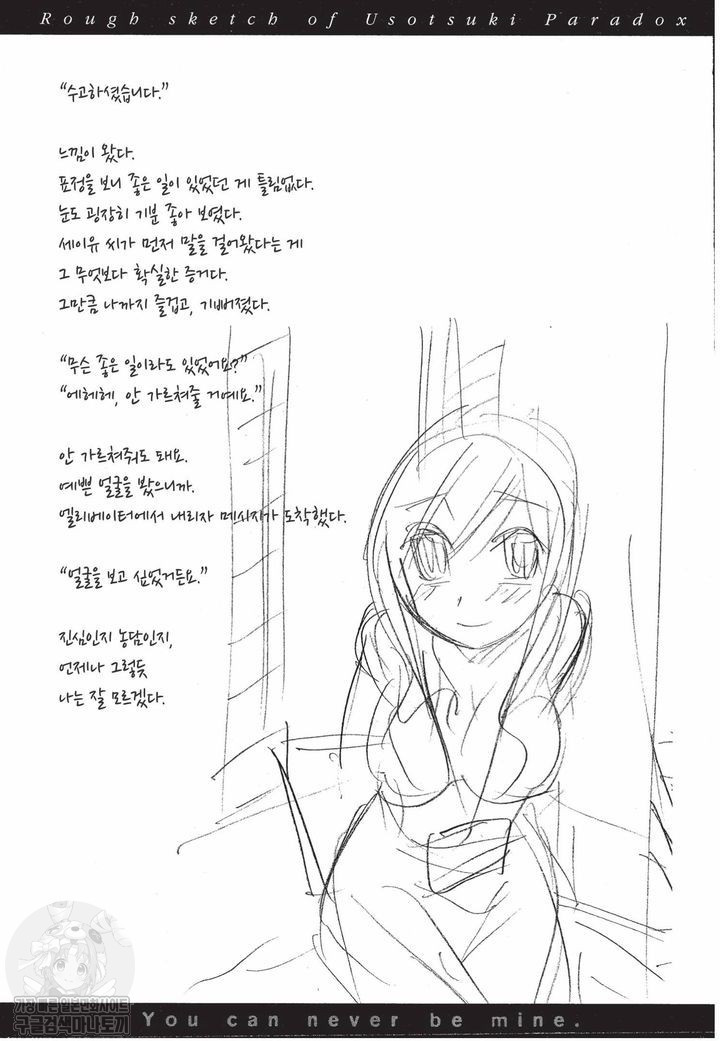 Rough sketch of Usotsuki Paradox
“수고하셨습니다.”
느낌이 왔다.
표정을 보니 좋은 일이 있었던 게 틀림없다.
눈도 굉장히 기분 좋아 보였다.
세이유 씨가 먼저 말을 걸어왔다는 게
그 무엇보다 확실한 증거다.
그만큼 나까지 즐겁고, 기뻐졌다.
“무슨 좋은 일이라도 있었어요?”
“에헤헤, 안 가르쳐줄 거예요.”
안 가르쳐줘도 돼요.
예쁜 얼굴을 봤으니까.
엘리베이터에서 내리자 메시지가 도착했다.
“얼굴을 보고 싶었거든요.”
진심인지 농담인지,
언제나 그렇듯
나는 잘 모르겠다.
가장 빠른 일본만화사이트
구글검색마나토끼
You can never be mine.